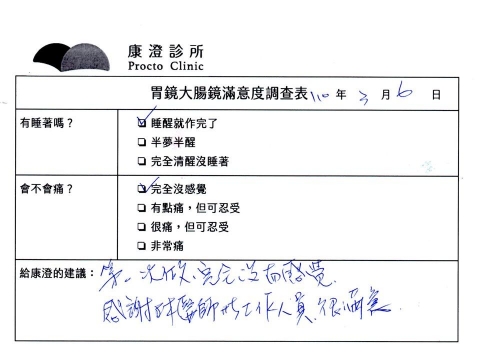 康澄診所
Procto Clinic
胃鏡大腸鏡滿意度調查表 110 年 3 月 6 日
有睡著嗎？
☑ 睡醒就作完了
❏ 半夢半醒
❏ 完全清醒沒睡著
會不會痛？
☑ 完全沒感覺
❏ 有點痛，但可忍受
❏ 很痛，但可忍受
❏ 非常痛
給康澄的建議：第一次做、完全沒有感覺.
感謝 醫師 工作人員、很滿意.